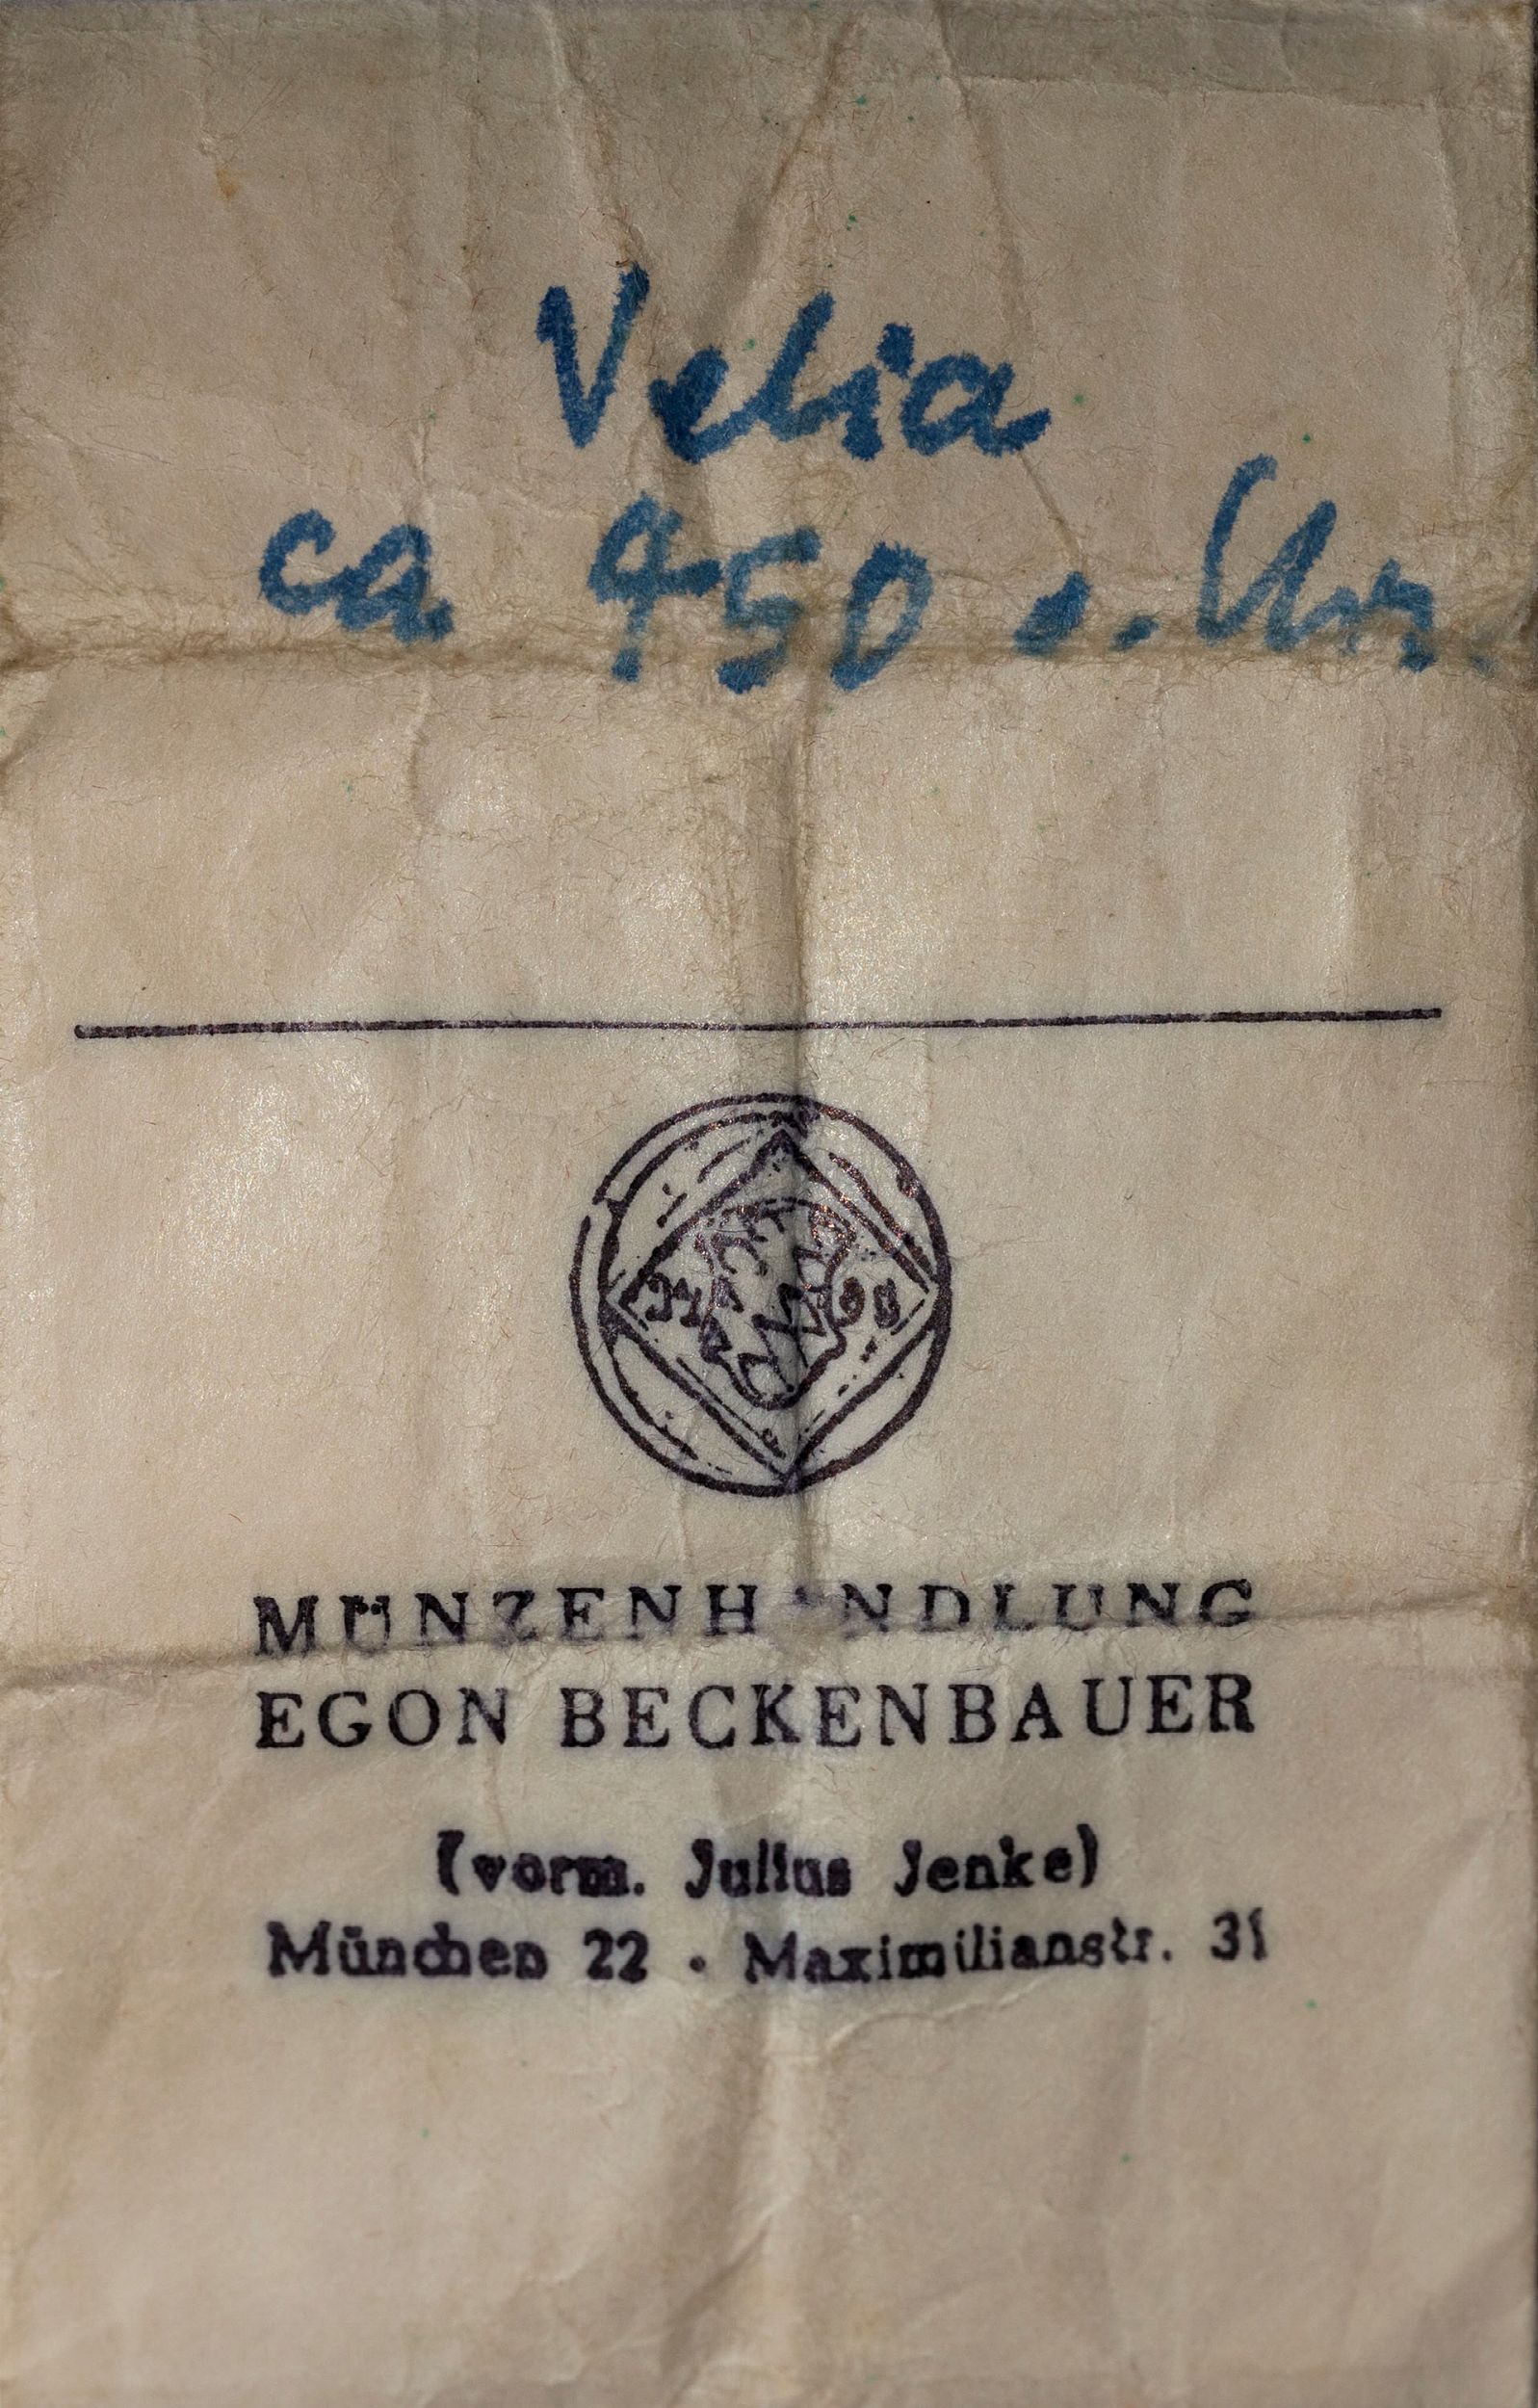 Velia
ca 450 v. Chr.
MÜNZENHANDLUNG
EGON BECKENBAUER
(vorm. Julius Jenke)
München 22 • Maximilianstr. 31